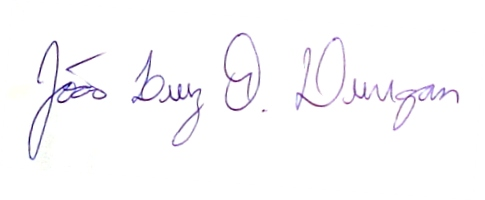 João Luiz D. Durgan